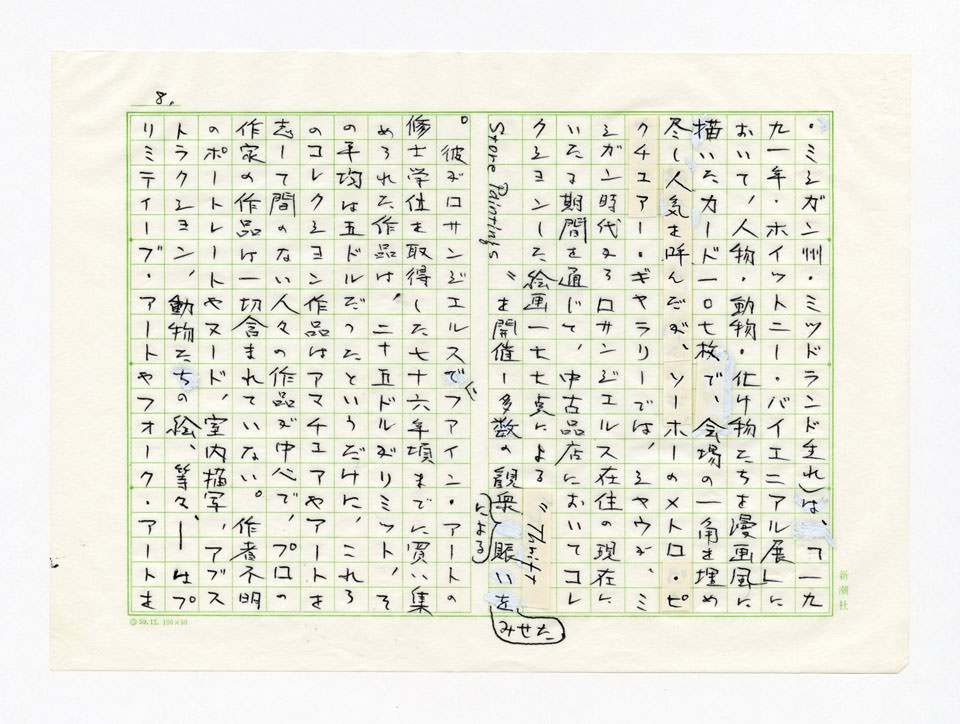 8.
・ミシガン州・ミッドランド生れ)は、「一九
九一年・ホイットニー・バイエニアル展」に
おいて、人物・動物・化け物たちを漫画風に
描いたカード一〇七枚で、会場の一角を埋め
尽し人気を呼んだが、ソーホーのメトロ・ピ
クチュアー・ギャラリーでは、シャウが、ミ
シガン時代からロサンジェルス在住の現在に
いたる期間を通じて、中古品店においてコレ
クションした絵画一七七点による〝Thrift
Store Paintings〟を開催し多数の観衆による賑いをみせた
。彼がロサンジェルスでファイン・アートの
修士学位を取得した七十六年頃までに買い集
められた作品は、二十五ドルがリミット、そ
の平均は五ドルだったというだけに、これら
のコレクション作品はアマチュアやアートを
志して間のない人々の作品が中心で、プロの
作家の作品は一切含まれていない。作者不明
のポートレートやヌード、室内描写、アブス
トラクション、動物たちの絵、等々、―はプ
リミティーブ・アートやフォーク・アートを
新潮社
50.12. 100×50